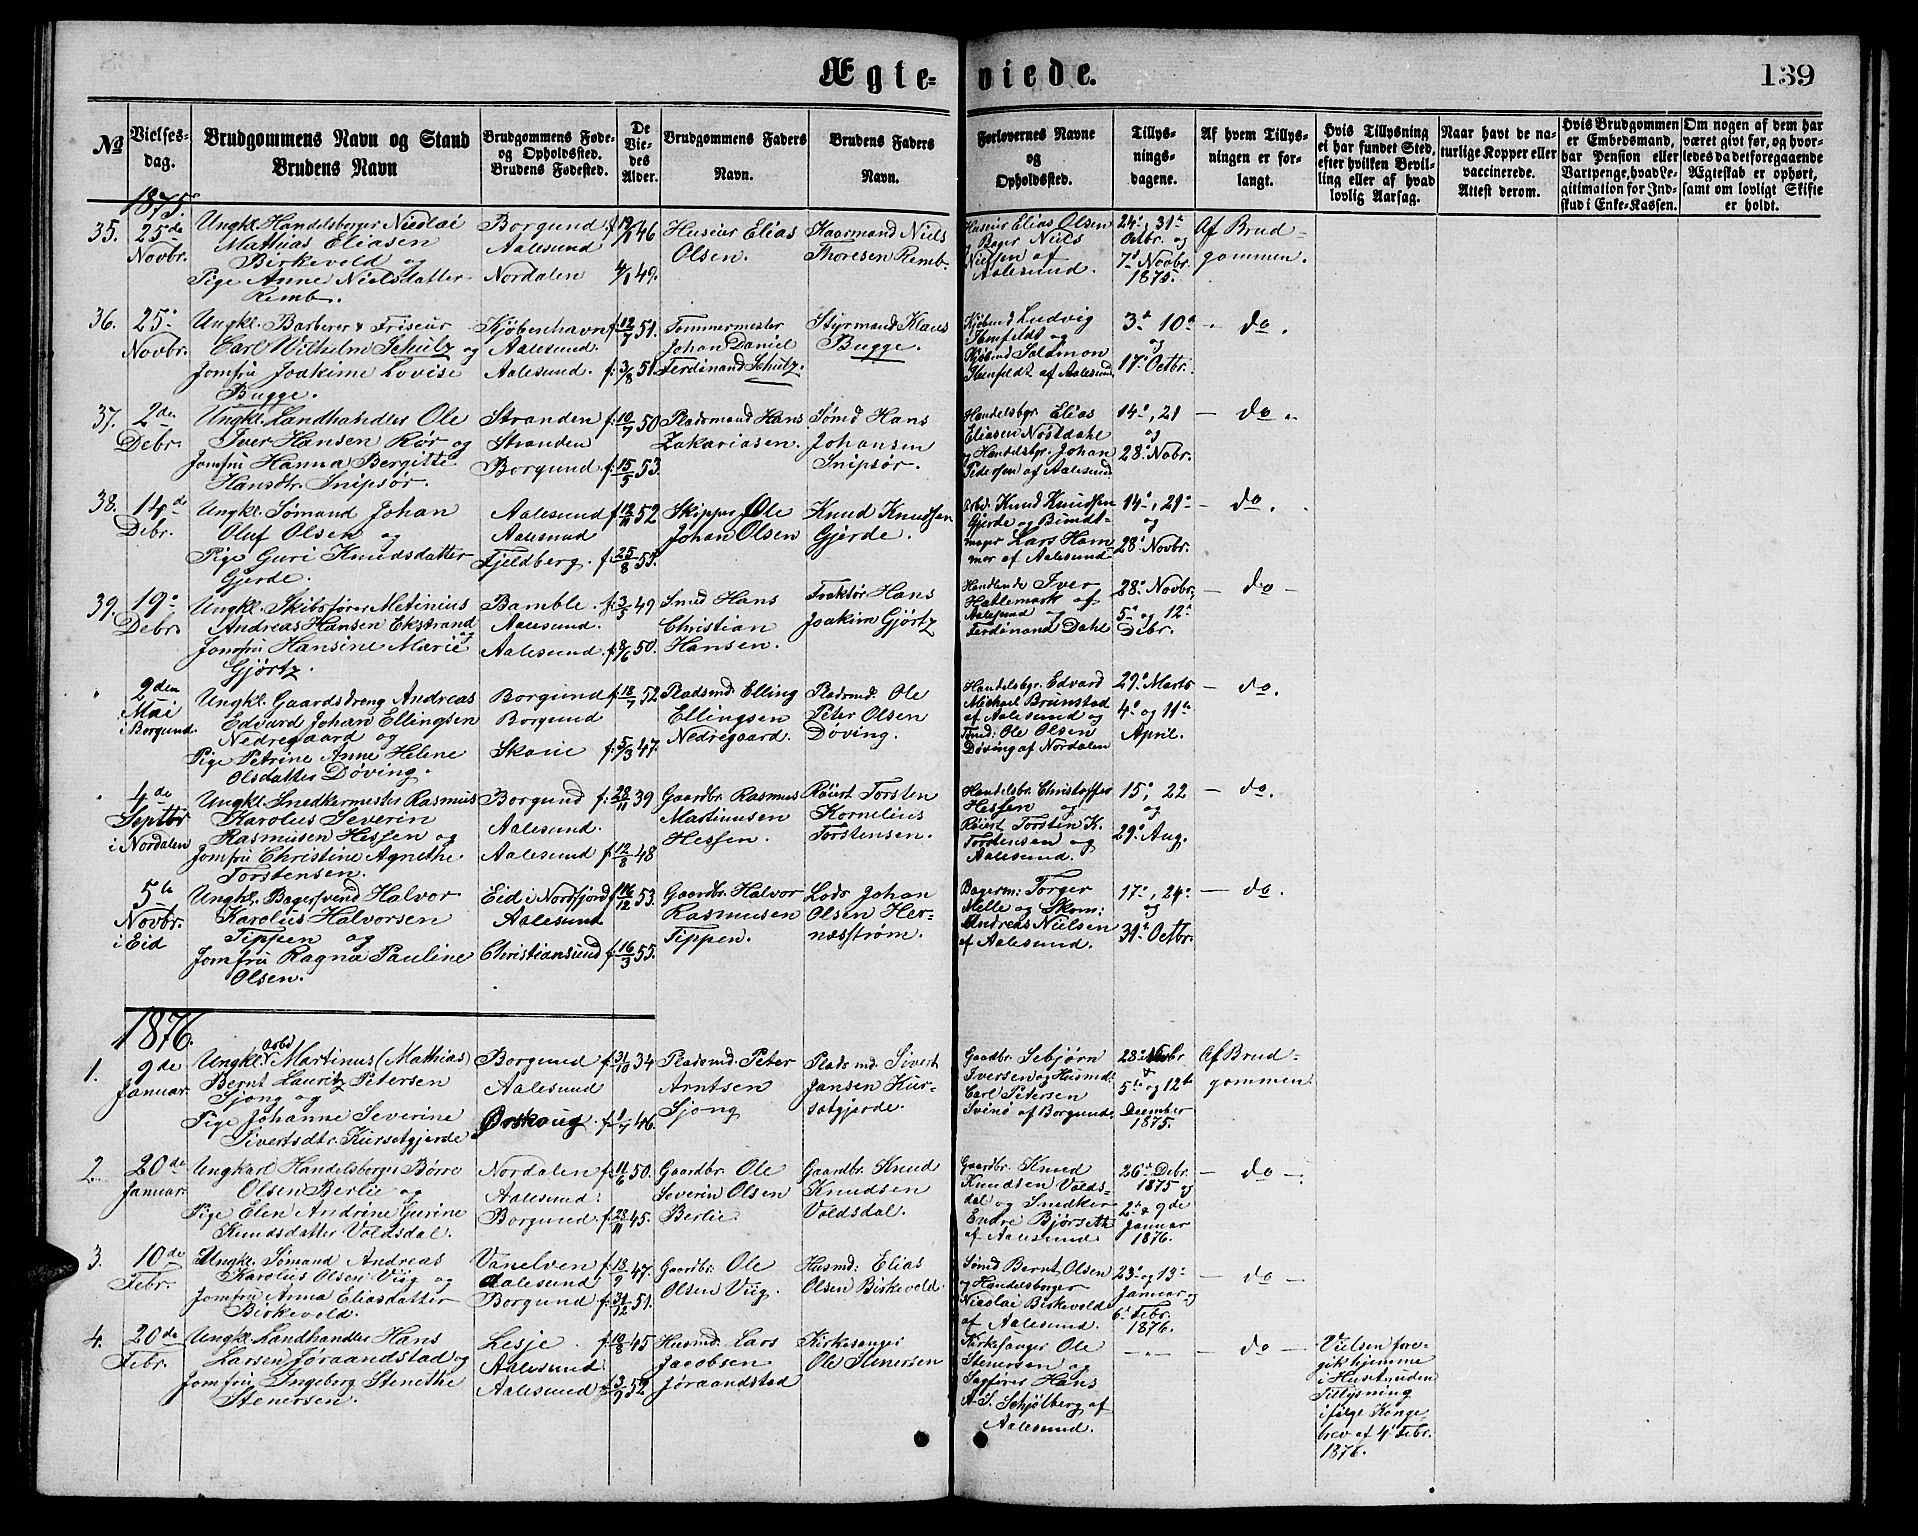 Ægte=
viede.
139
№
Vielses-
dag.
Brudgommens Navn og Stand
Brudens Navn
Brudgommens Føde-
og Opholdssted.
Brudens Fødested.
De
Vie-
des
Alder.
Brudgommens Faders
Navn.
Brudens Faders
Navn.
Forlovernes Navne
og
Opholdssted.
Tillys-
nings-
dagene.
Af hvem Tillys-
ningen er for-
langt.
Hvis Tillysning
ei har fundet Sted,
efter hvilken Bevil-
ling eller af hvad
lovlig Aarsag.
Naar havt de na-
turlige Kopper eller
vaccinerede.
Attest derom.
Hvis Brudgommen
er Embedsmand,
har Pension eller
Vartpenge, hvad Le-
gitimation for Ind-
skud i Enke-Kassen.
Om nogen af dem har
været givt før, og hvor-
ledes da det foregaaende
Ægteskab er ophørt,
samt om lovligt Skifte
er holdt.
1875.
35.
25de
Novbr.
Ungkl. Handelsborger Nicolai
Mathias Eliasen
Birkevold og
Pige Anne Nielsdatter
Remb.
Borgund
Aalesund
Nordalen
46
49.
Huseier Elias
Olsen.
Haarmand Niels
Thoresen Remb.
Huseier Elias Olsen
Bager Niels
Nielsen af
Aalesund.
24 31
Octbr. og
7 Novbr.
1875.
Af Brud-
gommen.
36.
25
Novbr.
Ungkl. Barberer & Friseur
Carl Wilhelm Schultz og
Jomfru Joakime Lovise
Bugge.
Kjøbenhavn
Aalesund.
Aalesund.
f. 12/7 51.
f. 3/8 51.
Tømmermester
Johan Daniel
Ferdinand Schultz.
Styrmand Klaus
Bugge.
Kjøbmd Ludvig
og
Kjøbmd Salomon
af Aalesund.
3. 10
og
17 Octbr.
do.
37.
2den
Debr.
Ungkl. Landhandler Ole
Iver Hansen Rør og
Jomfru Hanna Bergitte
Hansdtr. Snipsør.
Stranden
Stranden
Borgund
f. 10/7 50
f. 15/5 53.
Pladsmand Hans
Zakariasen.
Sømd Hans
Johansen
Snipsør.
Handelsbgr. Elias
Eliasen Nøstdahl
og Handelsbgr. Johan
Pedersen af Aalesund.
14, 21
og
28 Nobr.
do.
38.
14de
Debr.
Ungkl. Sømand Johan
Oluf Olsen og
Pige Guri Knudsdatter
Gjerde.
Aalesund
Aalesund
Fjeldberg.
52
f. 25/8 55.
Skipper Ole
Johan Olsen
Knud Knudsen
Gjerde.
Arbd. Knud Knudsen
Gjerde og Bundt-
mager Lars Ham-
mer af Aalesund
14, 21
og
28 Novbr.
do.
39.
19
Debr.
Ungkl. Skibsfører Metinius
Andreas Hansen Ekstrand og
Jomfru Hansine Marie
Gjørtz.
Bamble.
Aalesund.
Aalesund
f. 3/5 49
50.
Smed Hans
Christian
Hansen.
Faktor Hans
Joakim Gjørtz
Handlende Iver
Hatlemark af
Aalesund og
Ferdinand Dahl
28 Novbr,
5 og 12
Debr.
do
9den
Mai
i Borgund.
Ungkl. Gaardsdreng Andreas
Edvard Johan Ellingsen
Nedregaard og
Pige Petrine Anne Helene
Olsdatter Døving.
Borgund
Borgund
Skoue
f. 18/7 52
f. 5/3 47.
Pladsmd. Elling
Ellingsen
Nedregaard.
Pladsmd. Ole
Peter Olsen
Døving.
Handelsbgr. Edvard
Michael Brunstad
af Aalesund og
Tømd: Ole Olsen
Døving af Nordalen
29 Marts
4 og 11te
April.
do.
4de
Septbr
i Nordalen
Ungkl. Snedkermester Rasmus
Karolus Severin
Rasmusen Hessen og
Jomfru Christine Agnethe
Torstensen.
Borgund
Aalesund.
Aalesund
f. 28/11 39
f. 12/8 48
Gaardbr. Rasmus
Martinusen
Hessen.
Røiert Torsten
Kornelius
Torstensen.
Handelsbr. Christoffer
Hessen og
Røiert Torsten K.
Torstensen og
Aalesund.
15, 22
og
29 Aug.
do.
5te
Novbr.
i Eid
Ungkl. Bagersvend Halvor
Karolus Halvorsen
Tippen og
Jomfru Ragna Pauline
Olsen.
Eid i Nordfjord
Aalesund
Christiansund
f. 16/12 53.
f. 16/3 55.
Gaardbr. Halvor
Rasmusen
Tippen.
Lods Johan
Olsen Her-
næsstrøm.
Bagerm: Torger
Melle og Skom:
Andreas Nielsen
af Aalesund.
17, 24
og
31 Octbr.
do.
1876.
1.
9de
Januar
Arbd
Ungkl. Martinus (Mathias)
Bernt Lauritz Petersen
Sjong og
Pige Johanne Severine
Sivertsdtr. Kursetgjerde
Borgund
Aalesund
Ørskoug
f. 31/10 34
f. 1/7 46.
Pladsmd. Peter
Arntsen
Sjong
Pladsmd. Sivert
Jansen Kur-
setgjerde.
Gaardbr. Sebjørn
Iversen og Husmd:
Carl Petersen
Svinø af Borgund.
28 Nvbr
5te og 12te
December
1875.
Af Brud-
gommen
2.
20de
Januar
Ungkarl Handelsborger Børre
Olsen Berlie og
Pige Elen Andrine Gurine
Knudsdatter Valdsdal.
Nordalen
Aalesund.
Borgund.
f. 11/6 50.
f. 28/11 45.
Gaardbr. Ole
Severin Olsen
Berlie
Gaardbr. Knud
Knudsen
Valdsdal.
Gaardbr. Knud
Knudsen Valds-
dal og Snedker
Endre Bjørseth
af Aalesund.
26 Debr.
1875 og
2 & 9de
Januar
1876.
do
3.
10de
Febr.
Ungkl. Sømand Andreas
Karolus Olsen Viig og
Jomfru Anna Eliasdatter
Birkevold.
Vanelven
Aalesund
Borgund
f. 18/9 47.
f. 31/12 51.
Gaardbr. Ole
Olsen Viig.
Husmd: Elias
Olsen Birkevold
Sømd Bernt Olsen
og Handelsborger
Nicolai Birkevold
af Aalesund.
23 og 13
Januar og
6 Febr.
1876.
do
4.
20de
Febr.
Ungkl. Landhandler Hans
Larsen Jøraandstad og
Jomfru Ingeborg Stenethe
Stenersen.
Lesje.
Aalesund
Aalesund
f. 10/8 45
f. 3/9 52
Husmd. Lars
Jacobsen
Jøraandstad
Kirkesanger
Ole Stenersen
Kirkesanger Ole
Stenersen og
Sagfører Hans
A. S. Schjølberg af
Aalesund.
do
Vielsen fore-
gik hjemme
i Huset uden
Tillysning
ifølge Konge-
brev af 4 Febr.
1876.